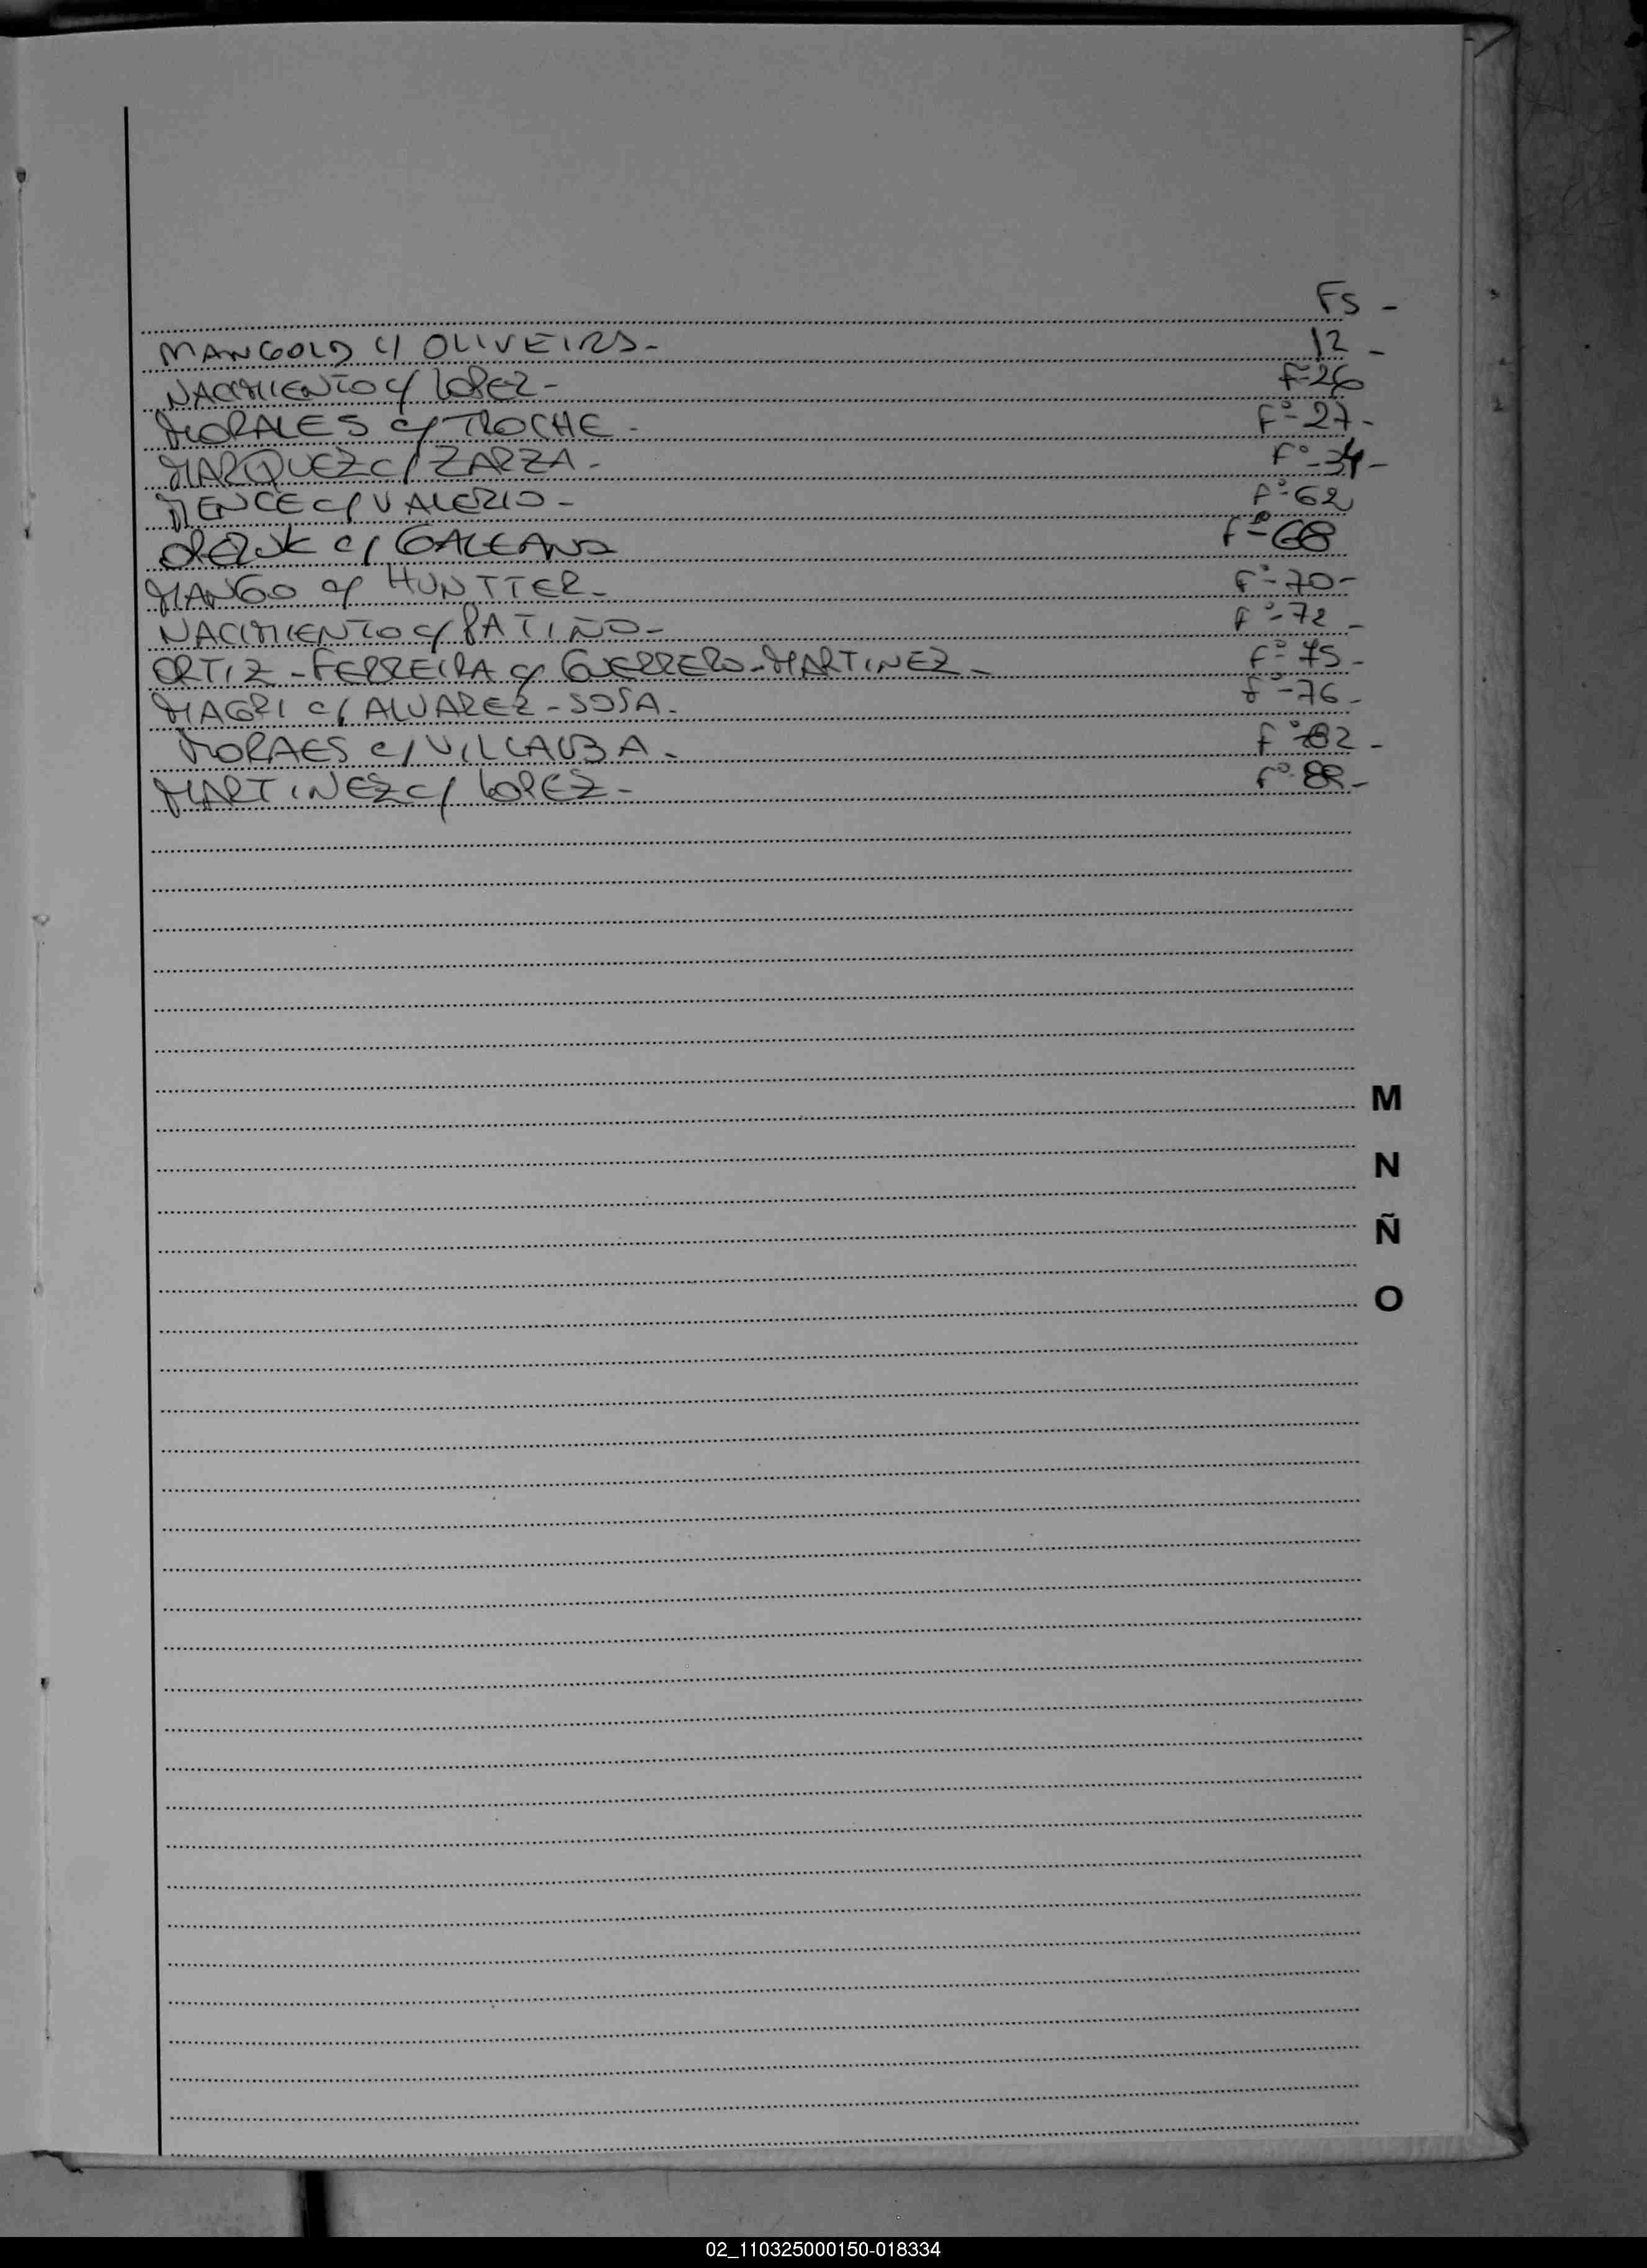 FS -
MANGOLD C/ OLIVEIRA - 12 -
NACIMIENTO C/ LOPEZ - Fº 26
MORALES C/ TROCHE - Fº - 27 -
MARQUEZ C/ ZARZA - Fº - 34 -
MENCE C/ VALERIO - Fº - 62
C/ GALEANO Fº - 68
MANGO C/ HUNTTER - Fº - 70 -
NACIMIENTO C/ PATIÑO - Fº - 72 -
ORTIZ - FERREIRA C/ GUERRERO - MARTINEZ - Fº - 75 -
MAGRI C/ ALVAREZ - SOSA - Fº - 76 -
MORAES C/ VILLALBA - Fº - 82 -
MARTINEZ C/ LOPEZ - Fº -
M
N
Ñ
O
02_110325000150-018334